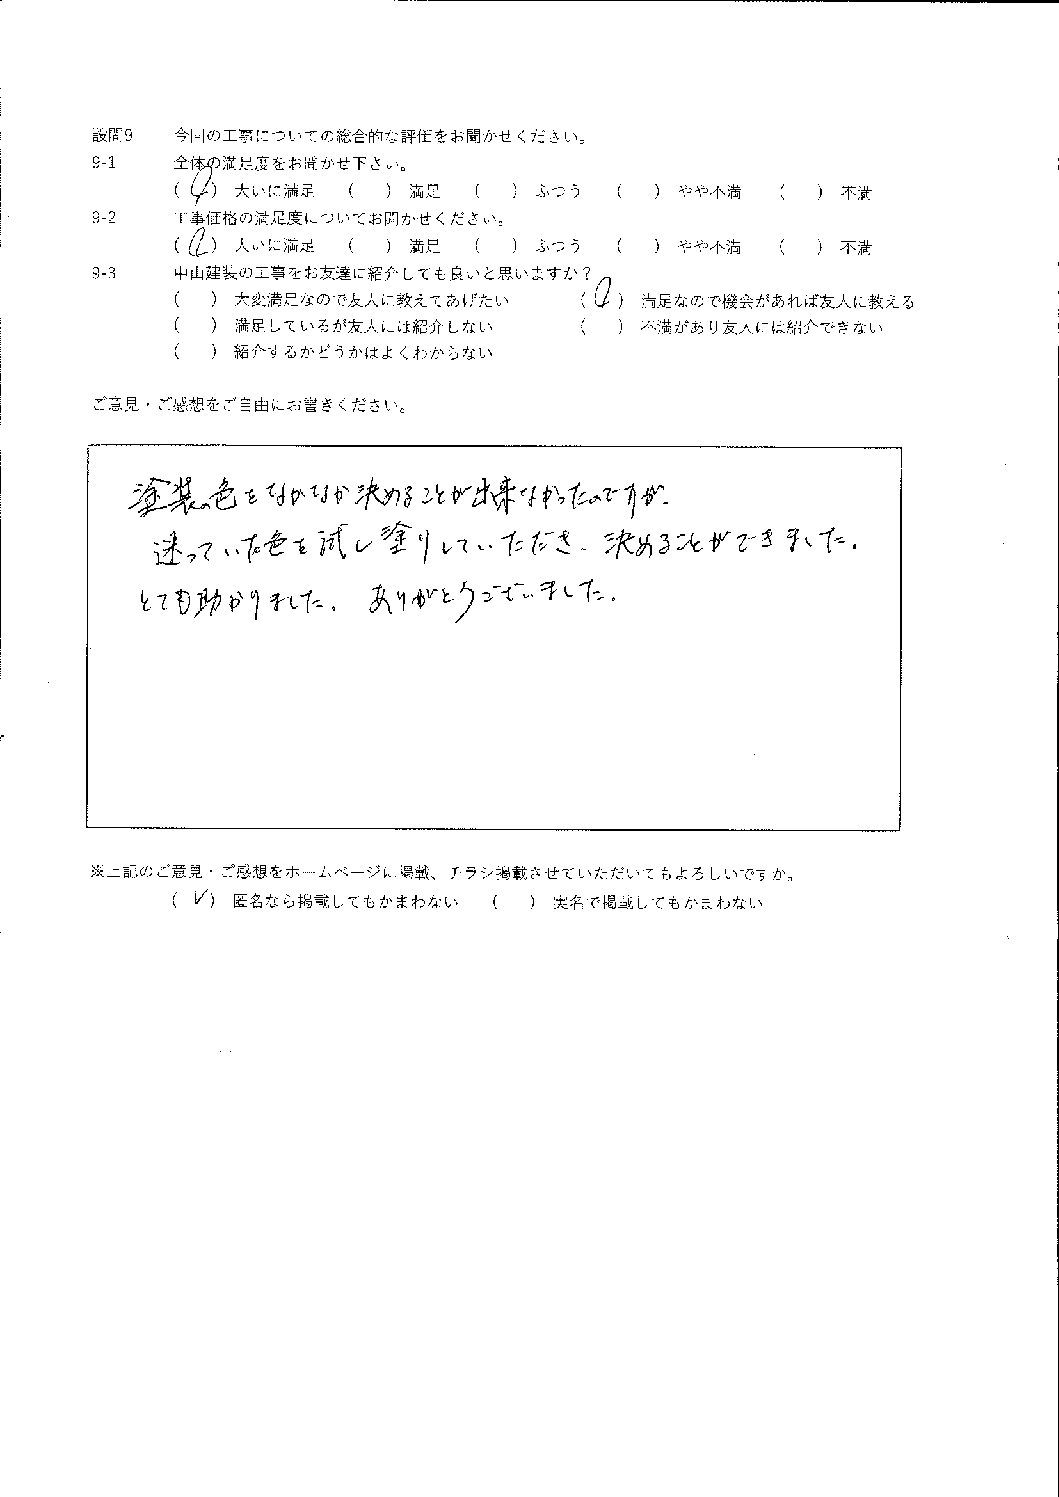 設問9 今回の工事についての総合的な評価をお聞かせください。
9-1 全体の満足度をお聞かせ下さい。
( ○ ) 大いに満足 ( ) 満足 ( ) ふつう ( ) やや不満 ( ) 不満
9-2 工事価格の満足度についてお聞かせください。
( ○ ) 大いに満足 ( ) 満足 ( ) ふつう ( ) やや不満 ( ) 不満
9-3 中山建装の工事をお友達に紹介しても良いと思いますか？
( ) 大変満足なので友人に教えてあげたい ( ○ ) 満足なので機会があれば友人に教える
( ) 満足しているが友人には紹介しない ( ) 不満があり友人には紹介できない
( ) 紹介するかどうかはよくわからない
ご意見・ご感想をご自由にお書きください。
塗装の色をなかなか決めることが出来なかったのですが、
迷っていた色を試し塗りしていただき、決めることができました。
とても助かりました。ありがとうございました。
※上記のご意見・ご感想をホームページに掲載、チラシ掲載させていただいてもよろしいですか。
( ✓ ) 匿名なら掲載してもかまわない ( ) 実名で掲載してもかまわない